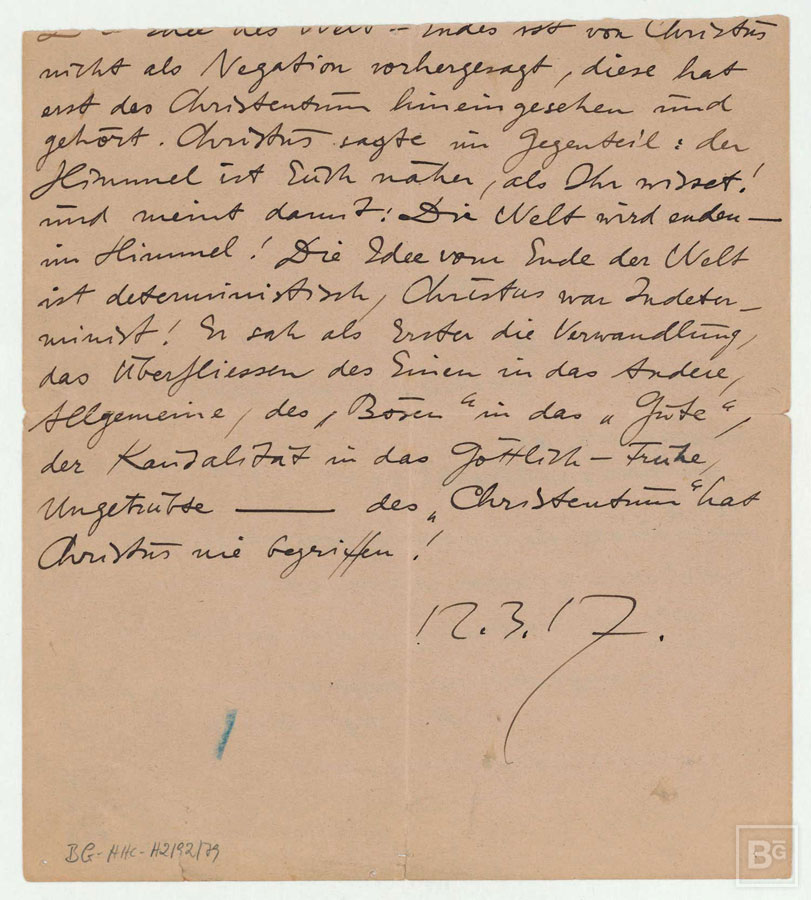 Die Idee des Welt-Endes ist von Christus
nicht als Negation vorhergesagt, diese hat
erst das Christentum hineingesehen und
gehört. Christus sagte im Gegenteil: der
Himmel ist Euch näher, als Ihr wisset!
und meint damit: Die Welt wird enden —
im Himmel! Die Idee vom Ende der Welt
ist deterministisch, Christus war Indeter-
minist! Er sah als Erster die Verwandlung,
das Überfliessen des Einen in das Andere,
Allgemeine, des „Bösen“ in das „Gute“,
der Kausalität in das Göttlich-Frühe,
Ungetrübte —— das „Christentum“ hat
Christus nie begriffen!
12.3.17.
BG-HHC-H2/92/79
BG